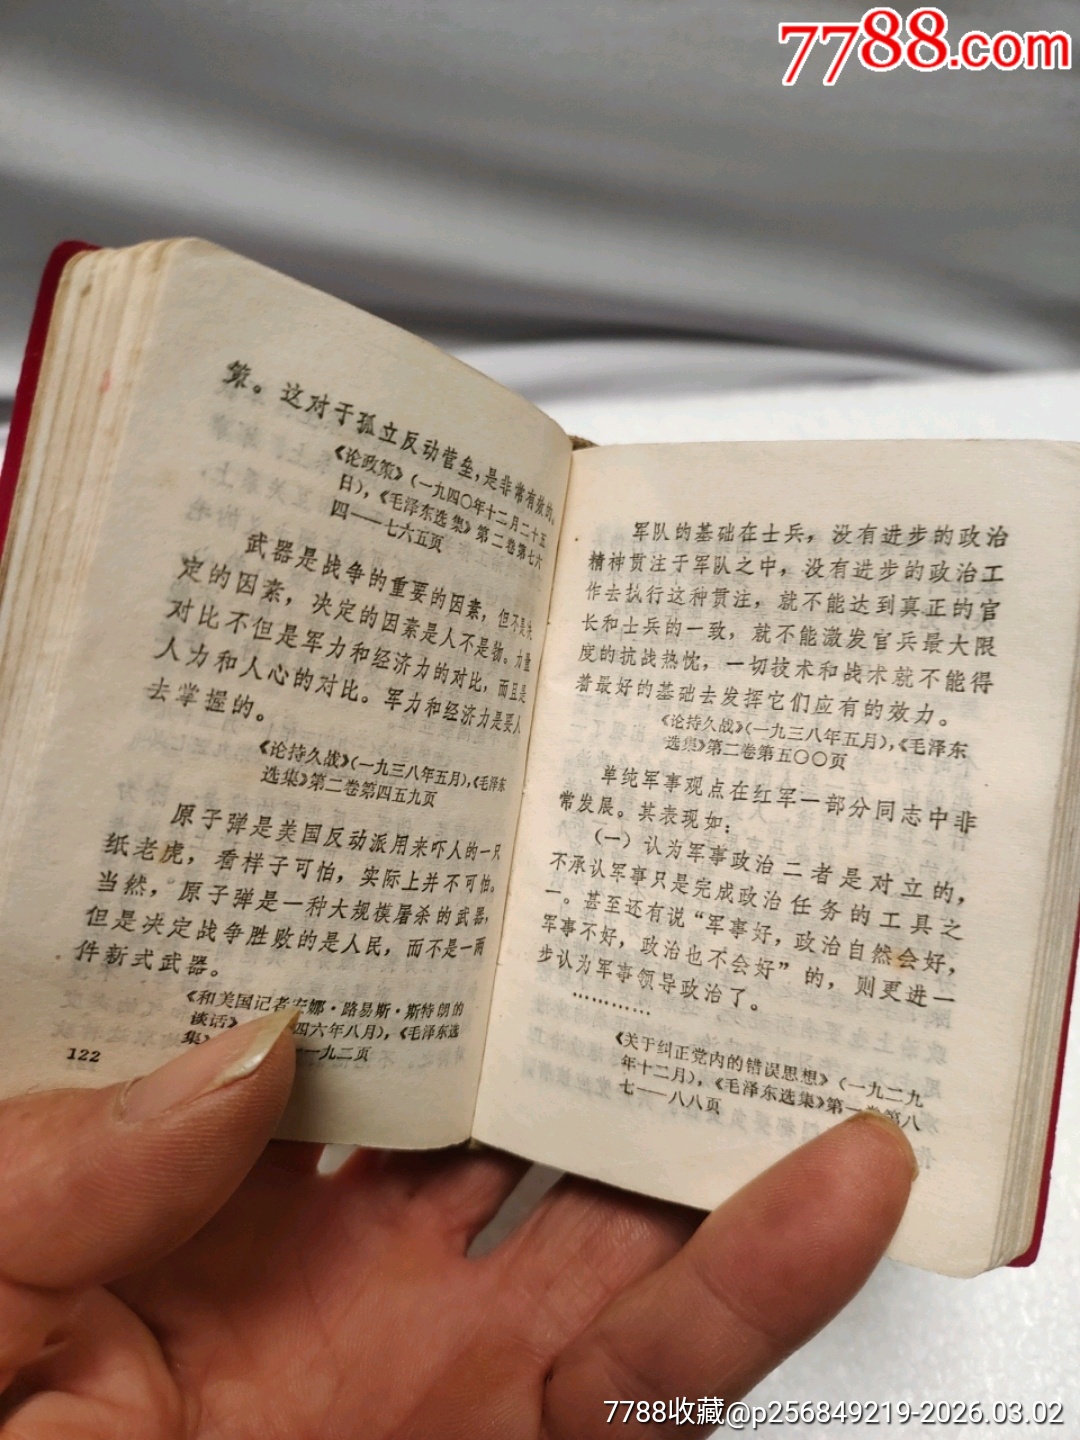 7788.com
策。这对于孤立反动营垒，是非常有效的。
《论政策》（一九四〇年十二月二十五
日），《毛泽东选集》第二卷第七六
四——七六五页
武器是战争的重要的因素，但不是决
定的因素，决定的因素是人不是物。力量
对比不但是军力和经济力的对比，而且是
人力和人心的对比。军力和经济力是要人
去掌握的。
《论持久战》（一九三八年五月），《毛泽东
选集》第二卷第四五九页
原子弹是美国反动派用来吓人的一只
纸老虎，看样子可怕，实际上并不可怕。
当然，原子弹是一种大规模屠杀的武器，
但是决定战争胜败的是人民，而不是一两
件新式武器。
《和美国记者安娜·路易斯·斯特朗的
谈话》四六年八月），《毛泽东选
集》——一九二页
122
军队的基础在士兵，没有进步的政治
精神贯注于军队之中，没有进步的政治工
作去执行这种贯注，就不能达到真正的官
长和士兵的一致，就不能激发官兵最大限
度的抗战热忱，一切技术和战术就不能得
着最好的基础去发挥它们应有的效力。
《论持久战》（一九三八年五月），《毛泽东
选集》第二卷第五〇〇页
单纯军事观点在红军一部分同志中非
常发展。其表现如：
（一）认为军事政治二者是对立的，
不承认军事只是完成政治任务的工具之
一。甚至还有说“军事好，政治自然会好，
军事不好，政治也不会好”的，则更进一
步认为军事领导政治了。
…………
《关于纠正党内的错误思想》（一九二九
年十二月），《毛泽东选集》第一卷第八
七——八八页
7788收藏@p256849219-2026.03.02